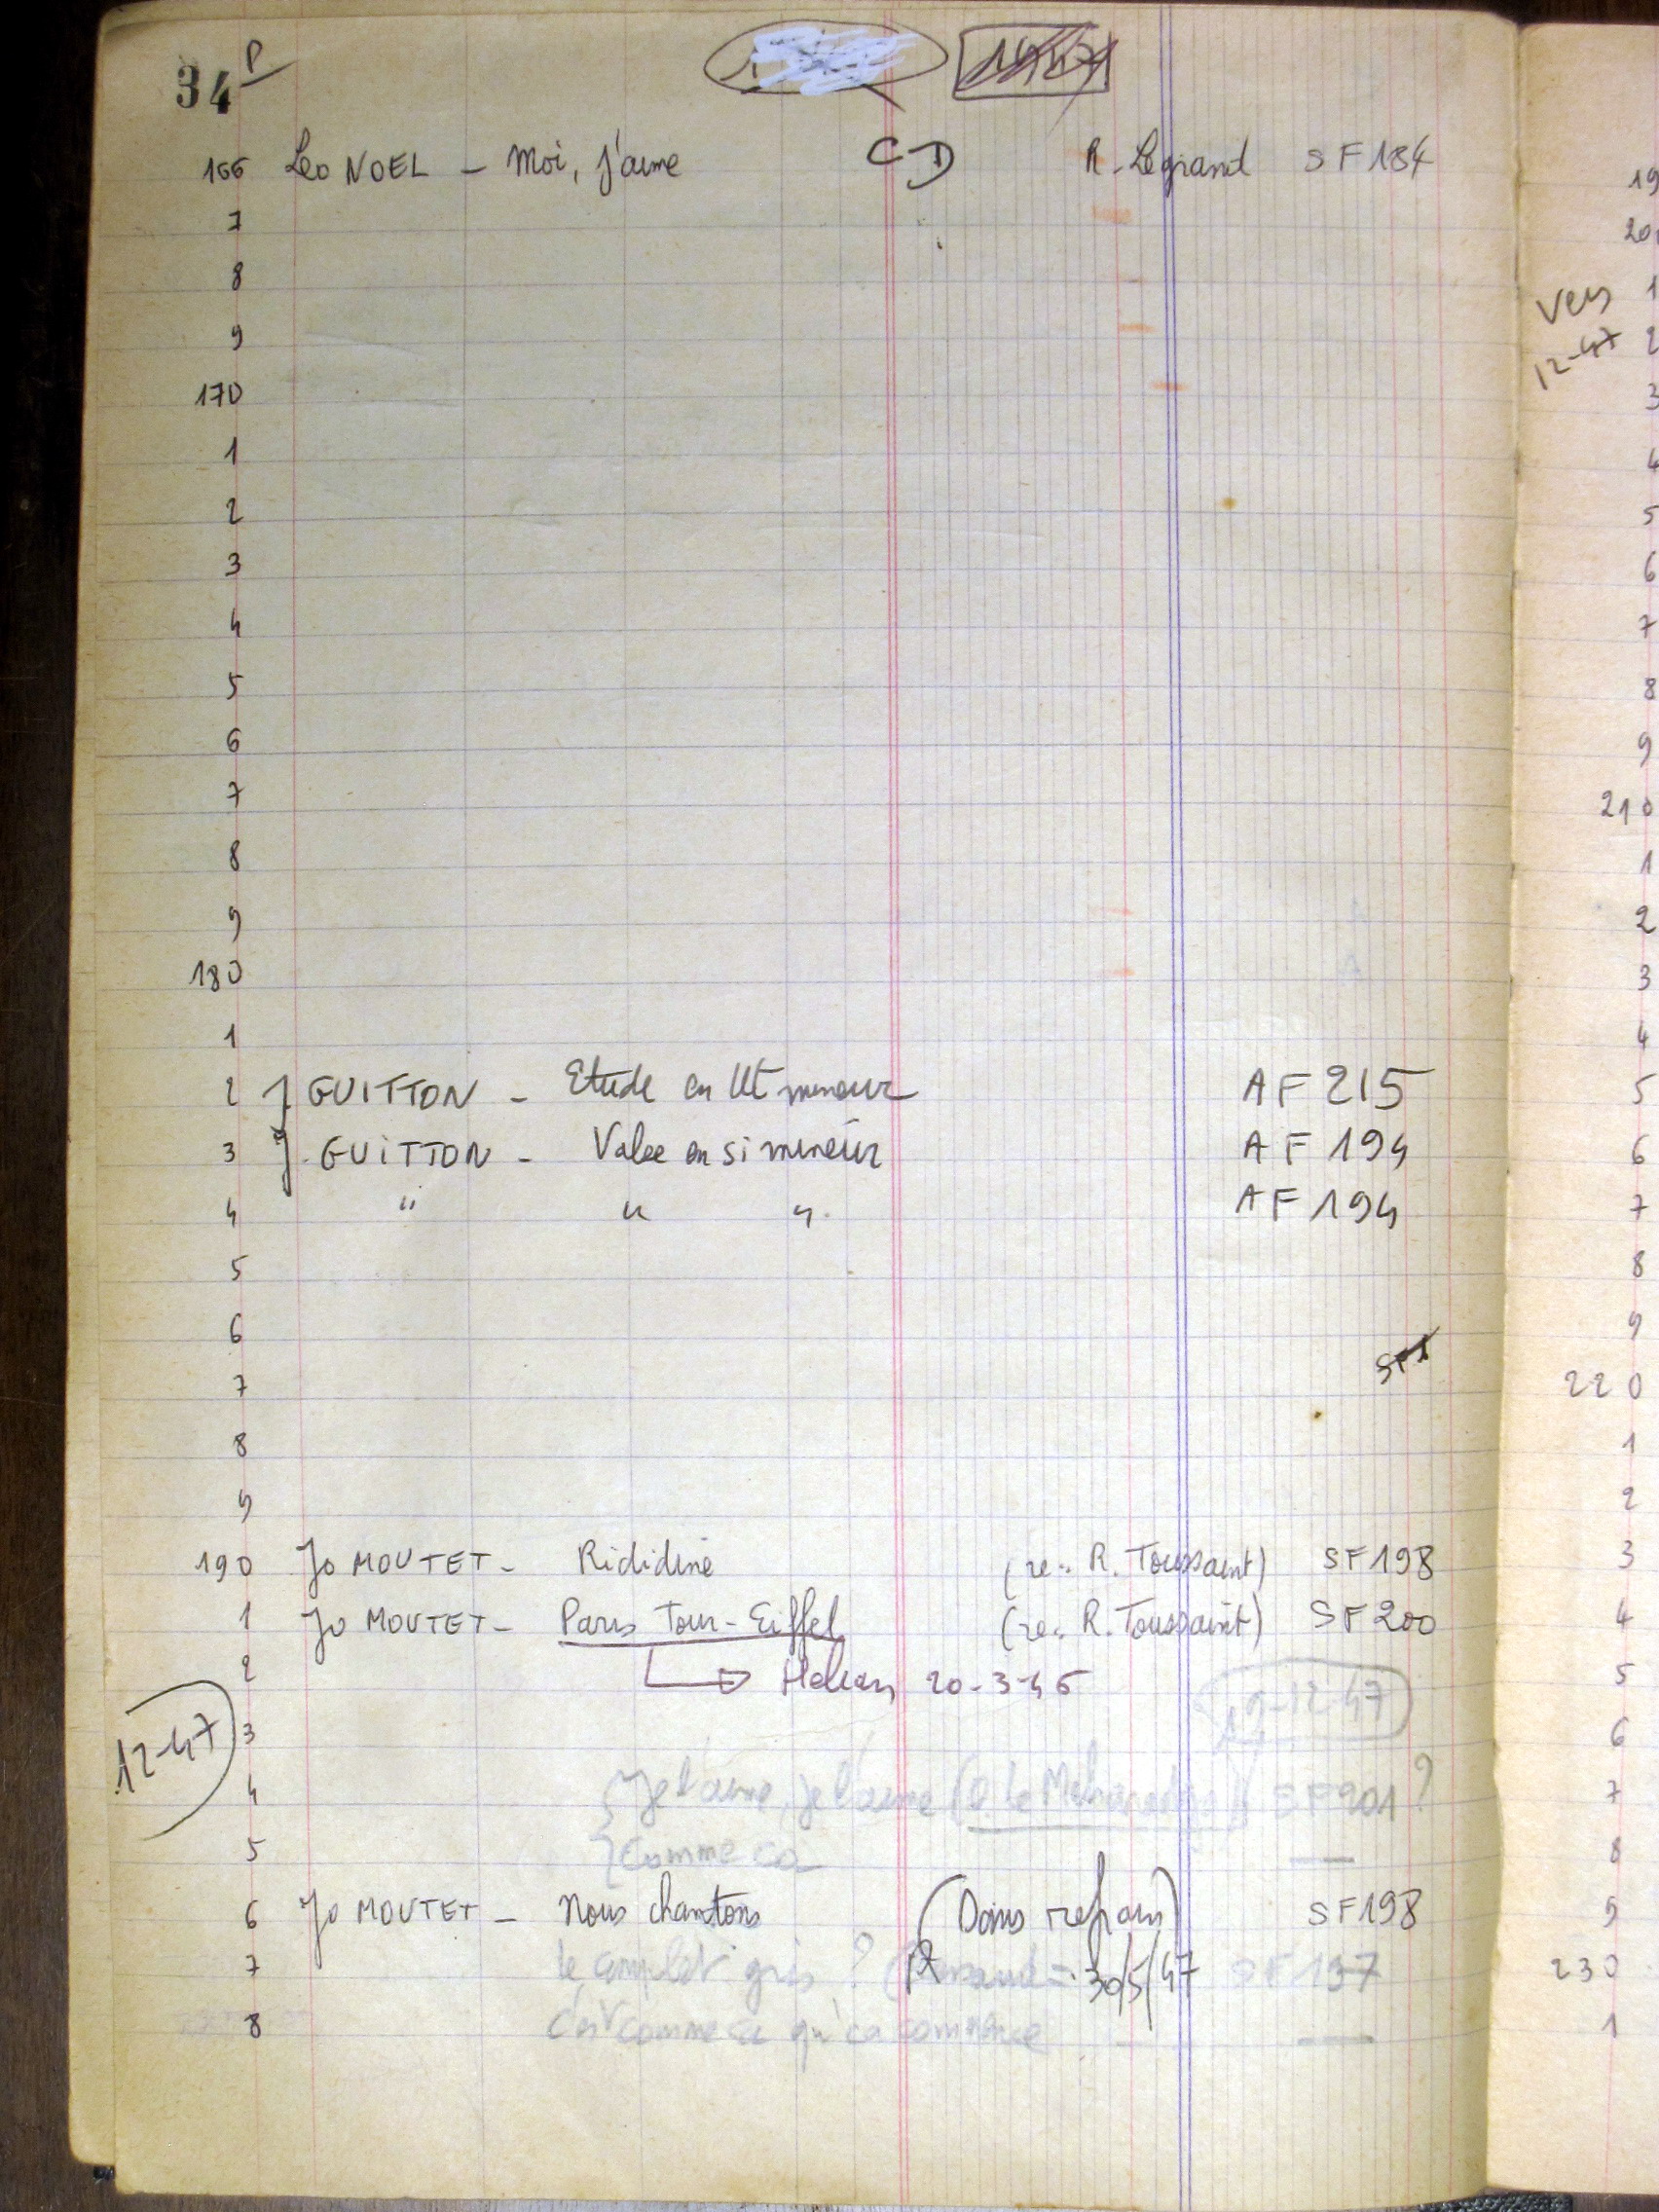 34 P
166 Léo NOEL - Moi, j'aime CD R. Legrand SF 184
7
8
9
170
1
2
3
4
5
6
7
8
9
180
1
2 J GUITTON - Etude en Ut mineur AF 215
3 J. GUITTON - Valse en si mineur AF 194
4 " " " AF 194
5
6
7
8
9
190 Jo MOUTET - Rididine (re: R. Toussaint) SF 198
1 Jo MOUTET - Paris Tour-Eiffel (re: R. Toussaint) SF 200
2 20-3-46
12-47
3 9-12-47
4 Je l'aime, je l'aime SF 201 ?
5 Comme ça —
6 Jo MOUTET - Nous chantons (Dans refrain) SF 198
7 le complet gris ? 30/5/47 SF 197
8 C'est comme ça qu'ça commence —
19
20
Vers 1
12-47 2
3
4
5
6
7
8
9
210
1
2
3
4
5
6
7
8
9
220
1
2
3
4
5
6
7
8
9
230
1